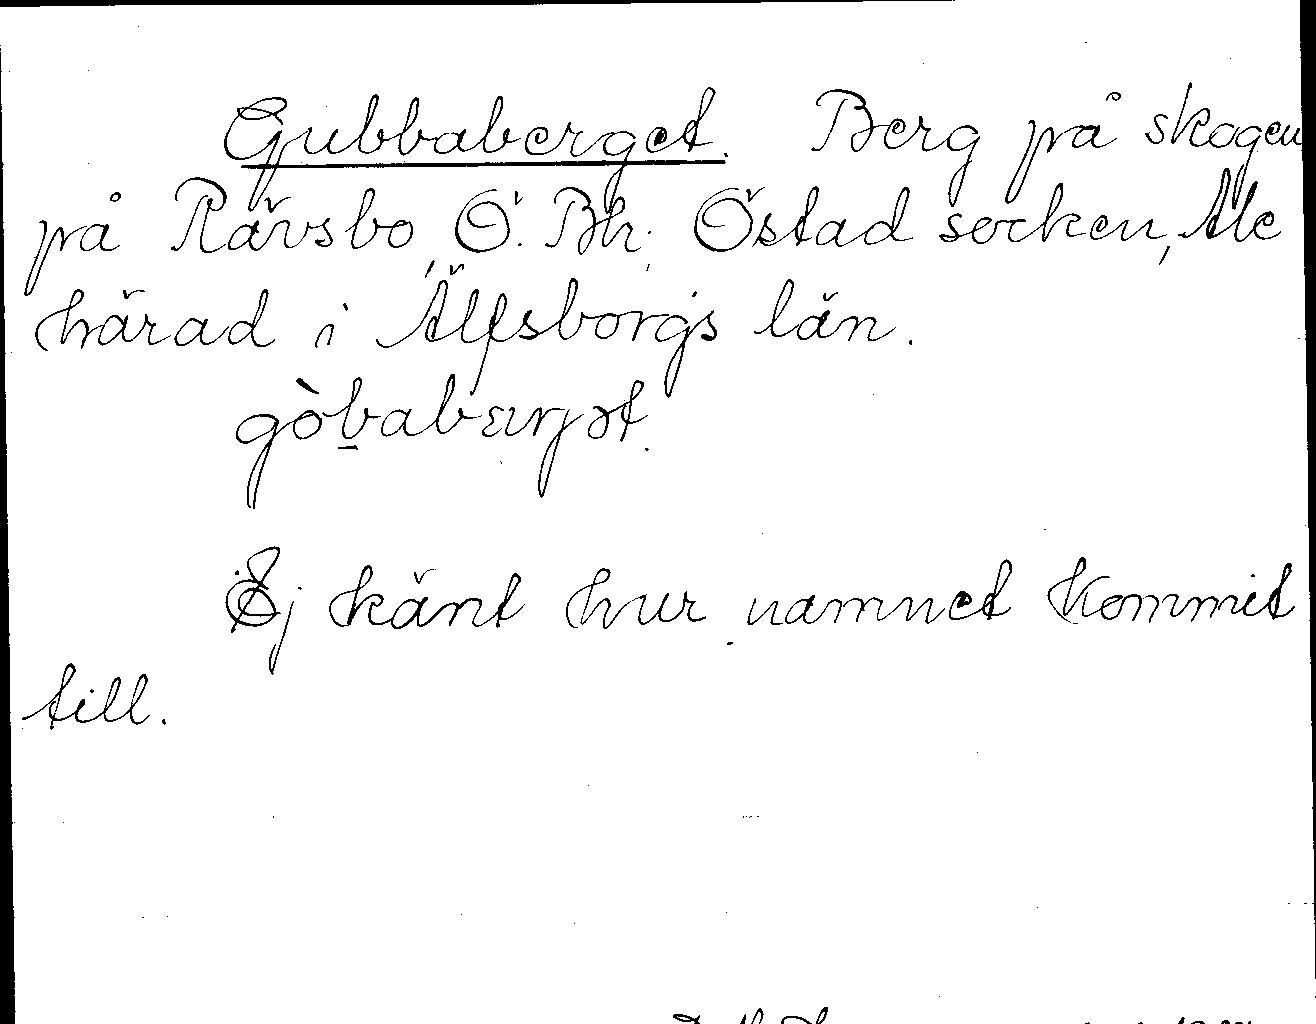 Gubbaberget. Berg på skogen
på Rävsbo, Ö. Bh., Östad socken, Ale
härad i Älfsborgs län.
gòb̠abærjət.
Ej känt hur namnet kommit
till.